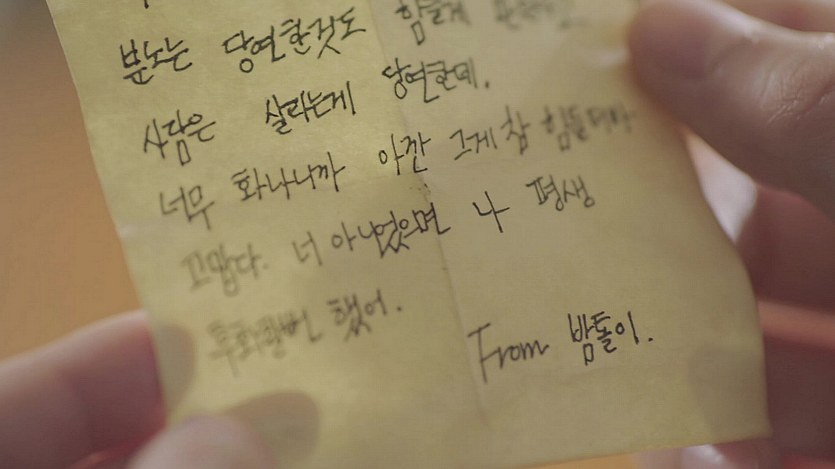 분노는 당연한것도 힘들게
사람은 살리는게 당연한데.
너무 화나니까 아깐 그게 참 힘들더라
고맙다. 너 아니었으면 나 평생
후회할뻔 했어.
From 밤톨이.